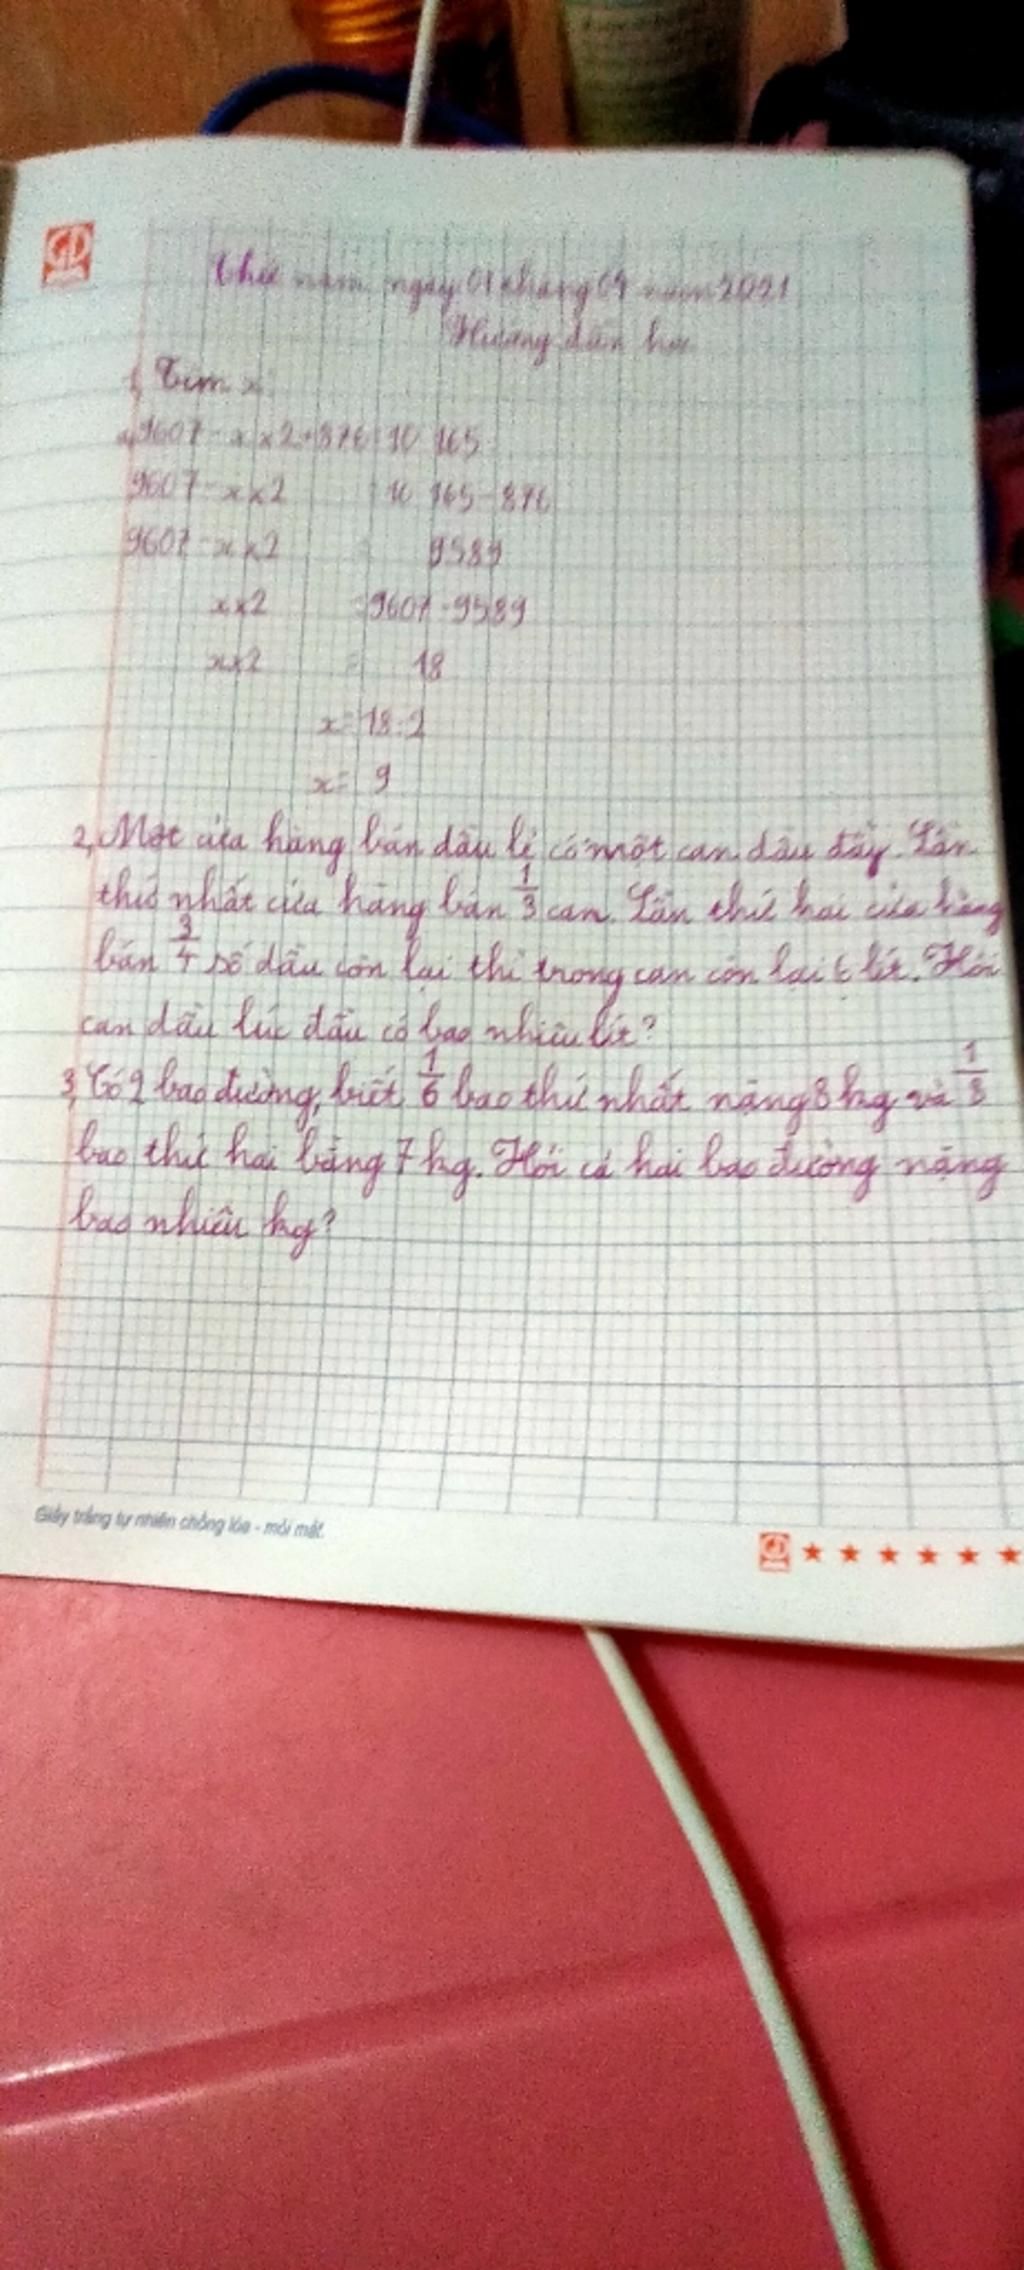 GD
Thứ năm ngày 01 tháng 04 năm 2021
Hướng dẫn học
1, Tìm x
a, 9607 - x x 2 + 876 = 10 465
9607 - x x 2 = 10 465 - 876
9607 - x x 2 = 9589
x x 2 = 9607 - 9589
x x 2 = 18
x = 18 : 2
x = 9
2, Một cửa hàng bán dầu lẻ có một can dầu đầy. Lần
thứ nhất cửa hàng bán 1/3 can. Lần thứ hai cửa hàng
bán 3/4 số dầu còn lại thì trong can còn lại lít. Hỏi
can dầu lúc đầu có bao nhiêu lít?
3, Có 2 bao đường, biết 1/6 bao thứ nhất nặng 8 kg và
bao thứ hai bằng 7 kg. Hỏi cả hai bao đường nặng
bao nhiêu kg?
Giấy trắng tự nhiên chống lóa - mỏi mắt.
GD